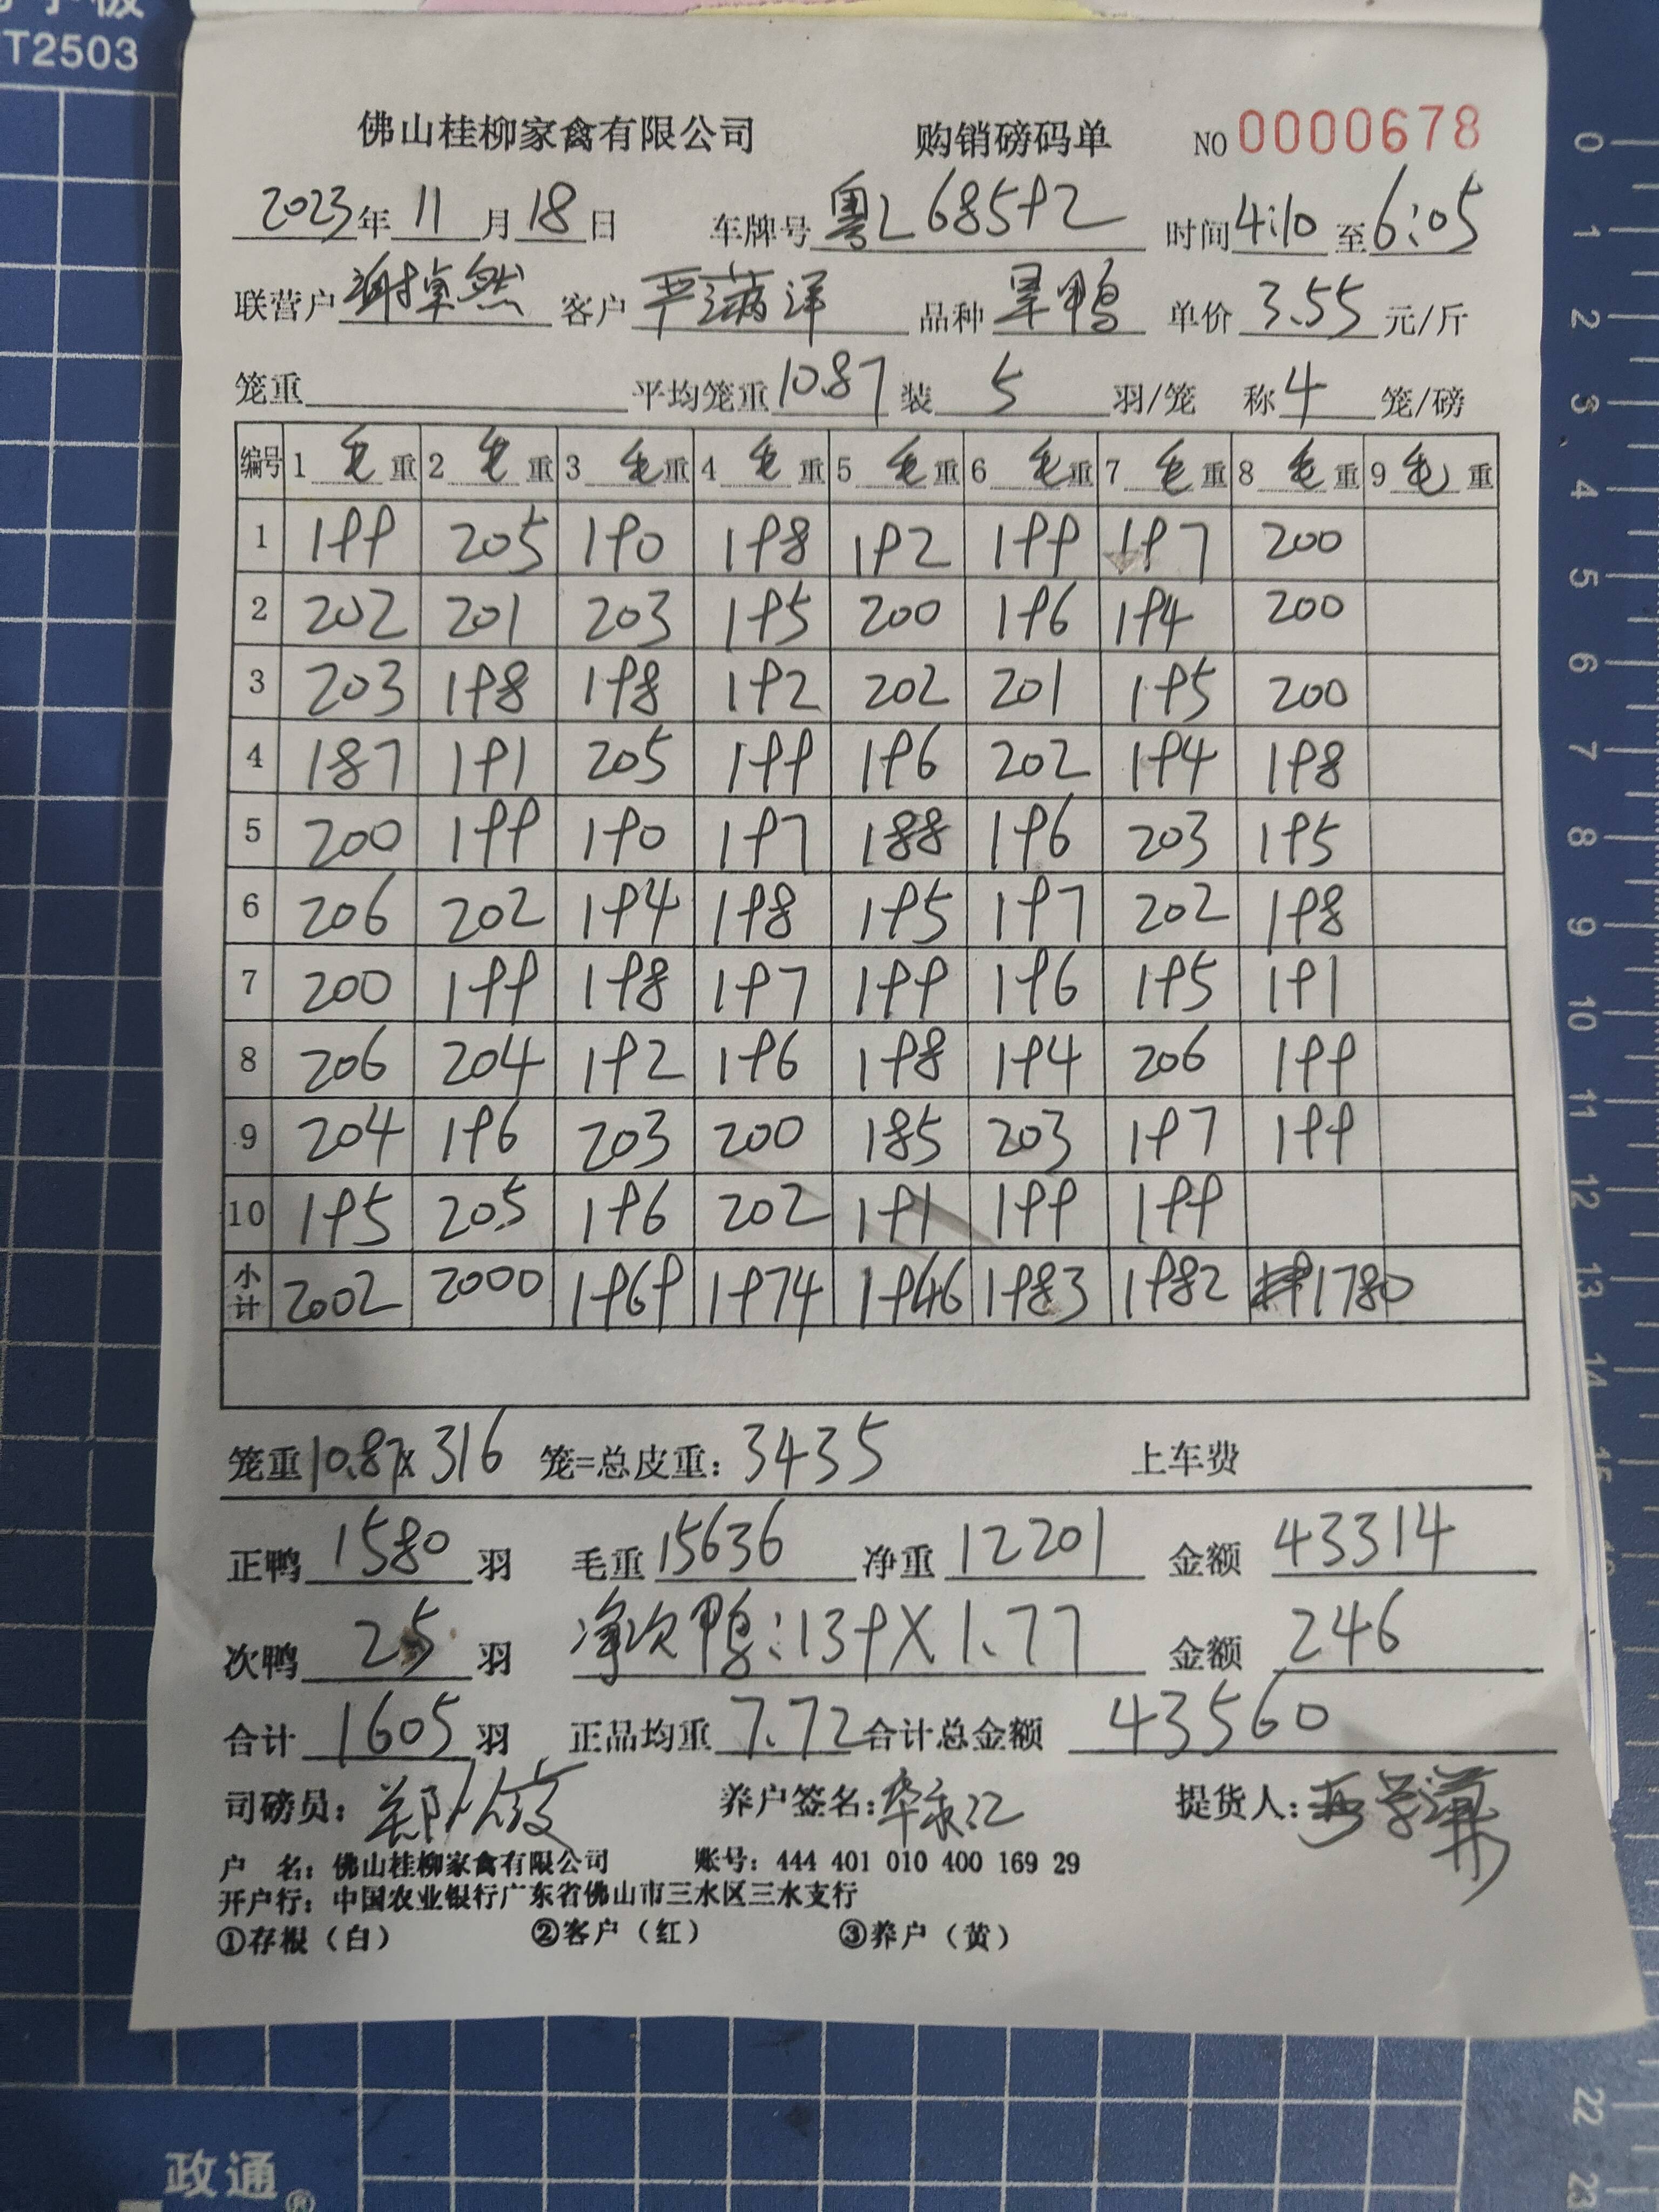 T2503
佛山桂柳家禽有限公司 购销磅码单 NO 0000678
2023年 11 月 18 日 车牌号 粤L 68592 时间 4:10 至 6:05
联营户 谢掉然 客户 严满洋 品种 旱鸭 单价 3.55 元/斤
笼重 平均笼重 10.87 装 5 羽/笼 称 4 笼/磅
编号 1 毛 重 2 毛 重 3 毛 重 4 毛 重 5 毛 重 6 毛 重 7 毛 重 8 毛 重 9 毛 重
1 199 205 190 198 192 199 197 200
2 202 201 203 195 200 196 194 200
3 203 198 198 192 202 201 195 200
4 187 191 205 199 196 202 194 198
5 200 199 190 197 188 196 203 195
6 206 202 194 198 195 197 202 198
7 200 199 198 197 199 196 195 191
8 206 204 192 196 198 194 206 199
9 204 196 203 200 185 203 197 199
10 195 205 196 202 191 199 199
小计 2002 2000 1969 1974 1946 1983 1982 1780
笼重 10.87 x 316 笼=总皮重: 3435 上车费
正鸭 1580 羽 毛重 15636 净重 12201 金额 43314
次鸭 25 羽 净次鸭:139 X 1.77 金额 246
合计 1605 羽 正品均重 7.72 合计总金额 43560
司磅员: 养户签名: 提货人:
户 名: 佛山桂柳家禽有限公司 账号: 444 401 010 400 169 29
开户行: 中国农业银行广东省佛山市三水区三水支行
①存根（白） ②客户（红） ③养户（黄）
政通®
0
1
2
3
4
5
6
7
8
9
10
11
12
13
14
15
22
23